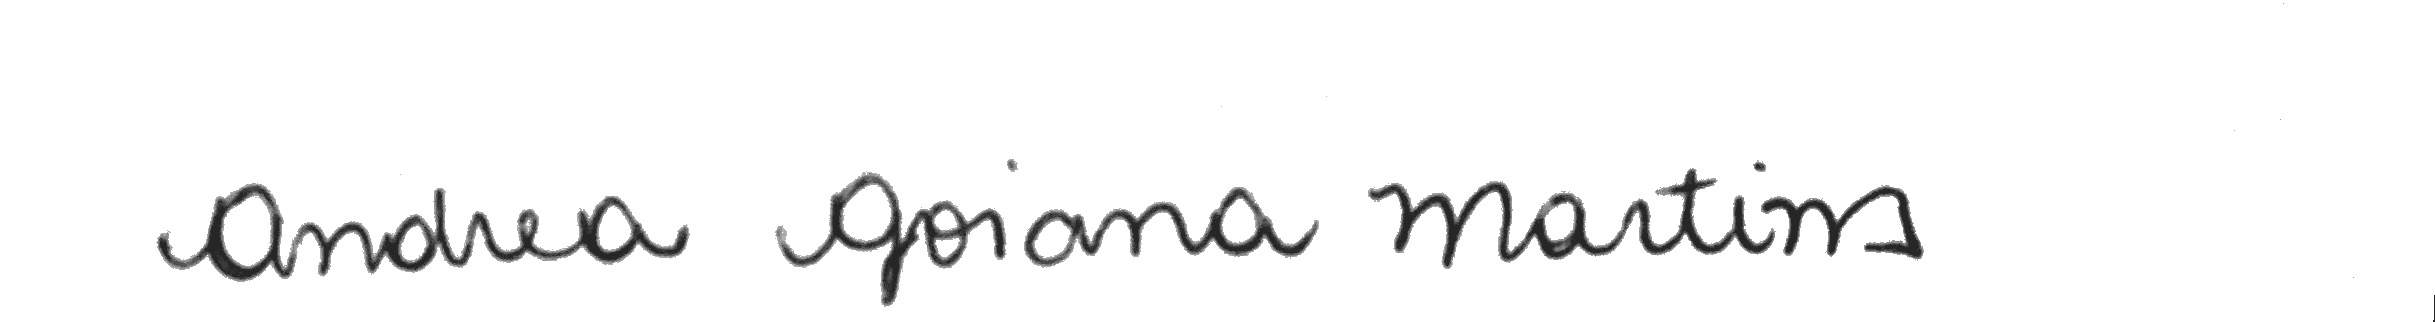 Andrea Goiana Martins